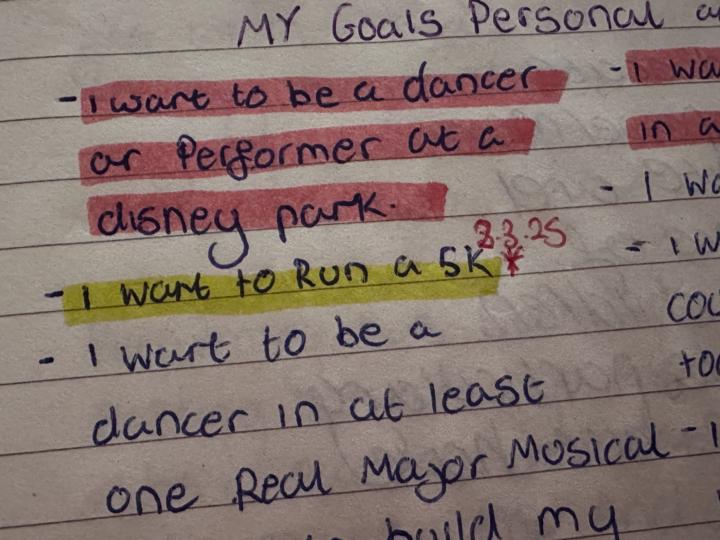 MY Goals Personal a
- I want to be a dancer
or Performer at a
disney park.
- I want to Run a 5K * 3.3.25
- I want to be a
dancer in at least
one Real Major Musical
build my
- I wa
in a
- I wa
- I w
cou
to
- I